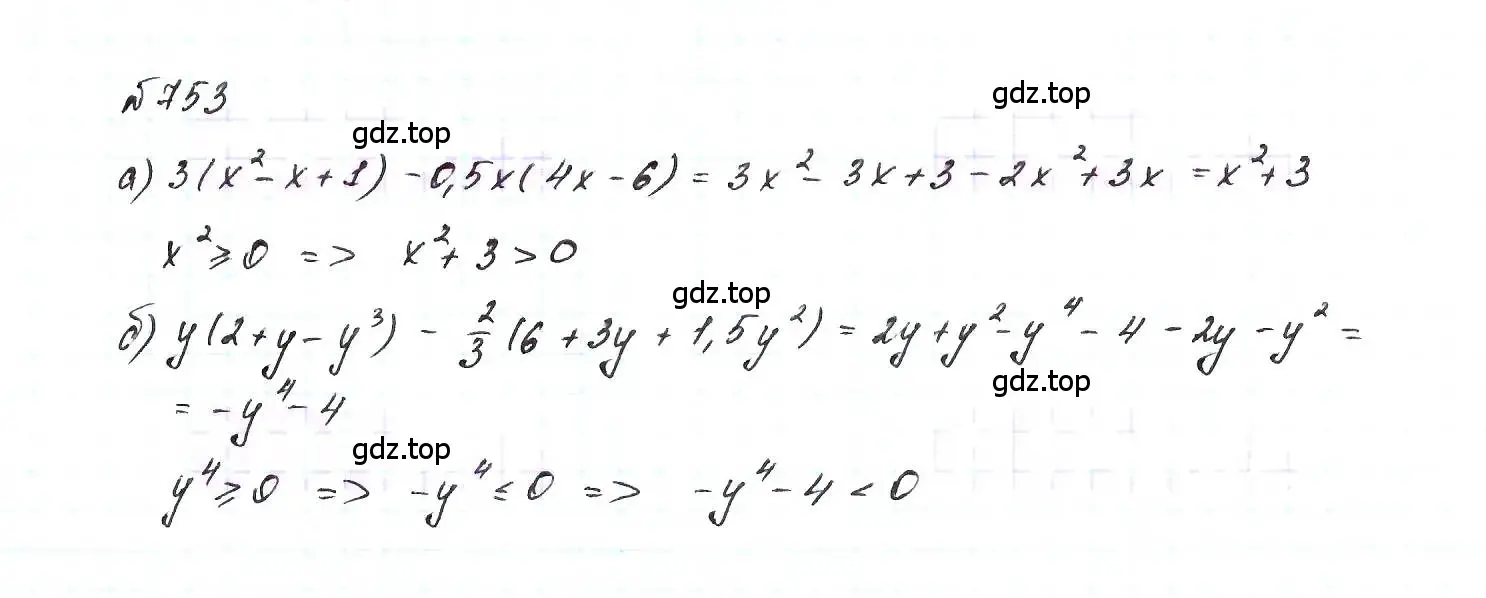 №753
gdz.top
gdz.top
а) 3(x²-x+1)-0,5x(4x-6)=3x²-3x+3-2x²+3x=x²+3
x²⩾0 => x²+3>0
gdz.top
б) y(2+y-y³)-2/3(6+3y+1,5y²)=2y+y²-y⁴-4-2y-y²=
gdz.top
=-y⁴-4
gdz.top
y⁴⩾0 => -y⁴⩽0 => -y⁴-4<0